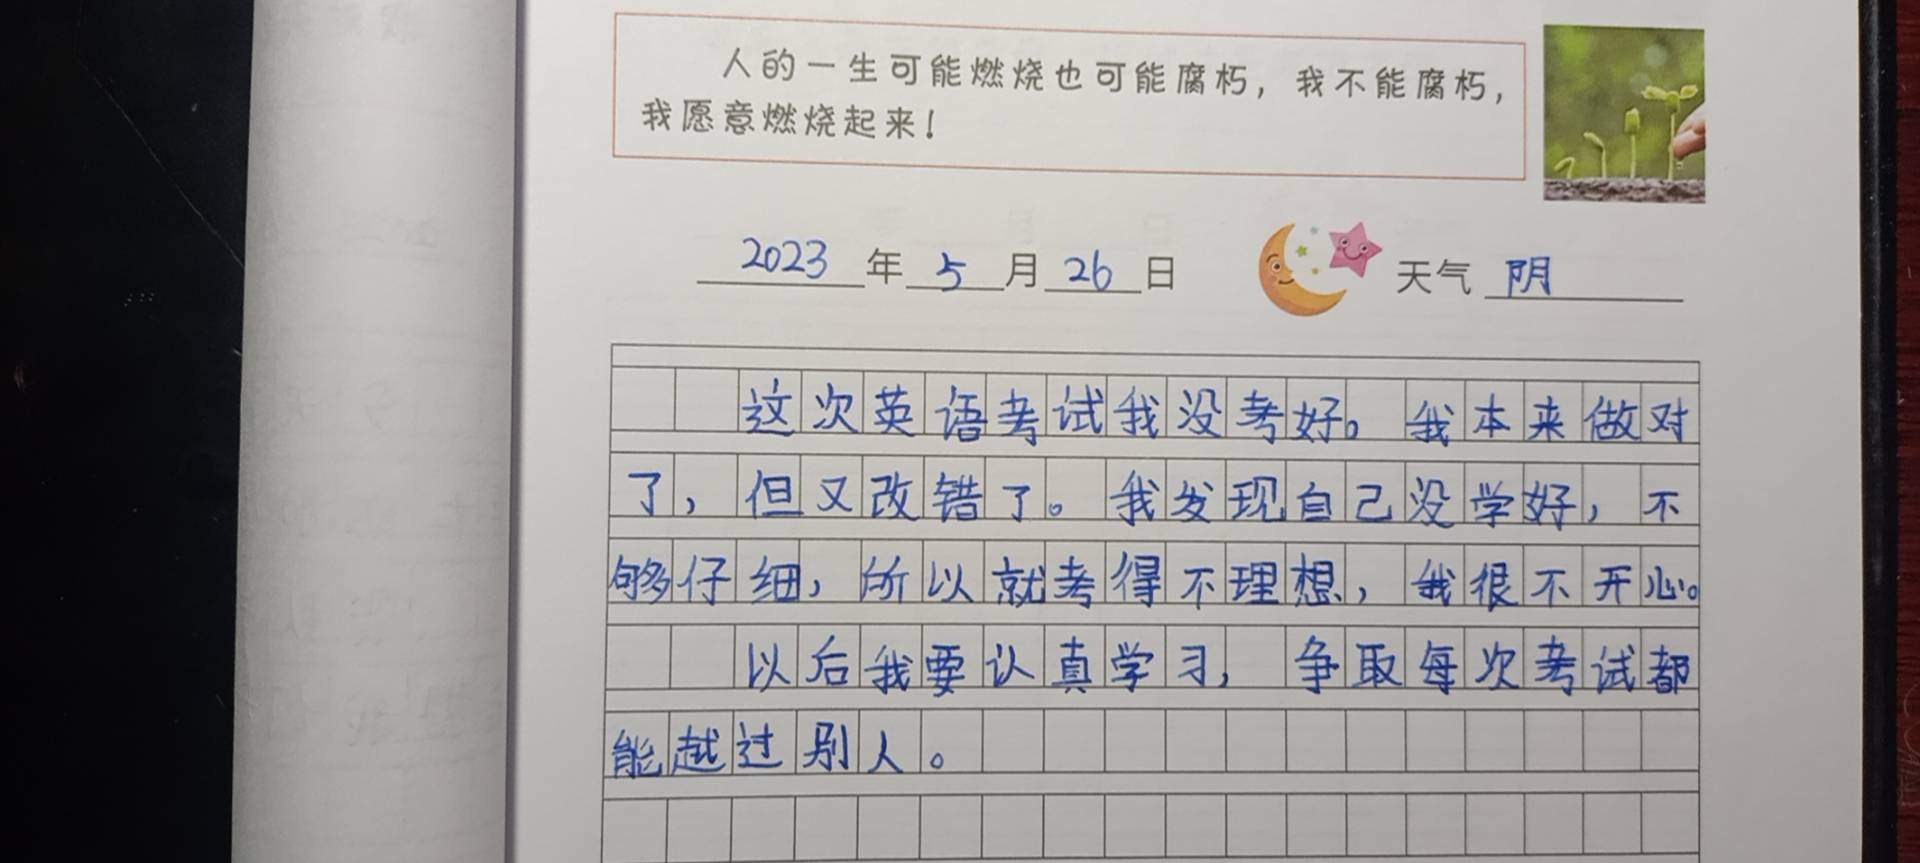 人的一生可能燃烧也可能腐朽，我不能腐朽，
我愿意燃烧起来！
2023年5月26日 天气 阴
这次英语考试我没考好。我本来做对
了，但又改错了。我发现自己没学好，不
够仔细，所以就考得不理想，我很不开心。
以后我要认真学习，争取每次考试都
能越过别人。